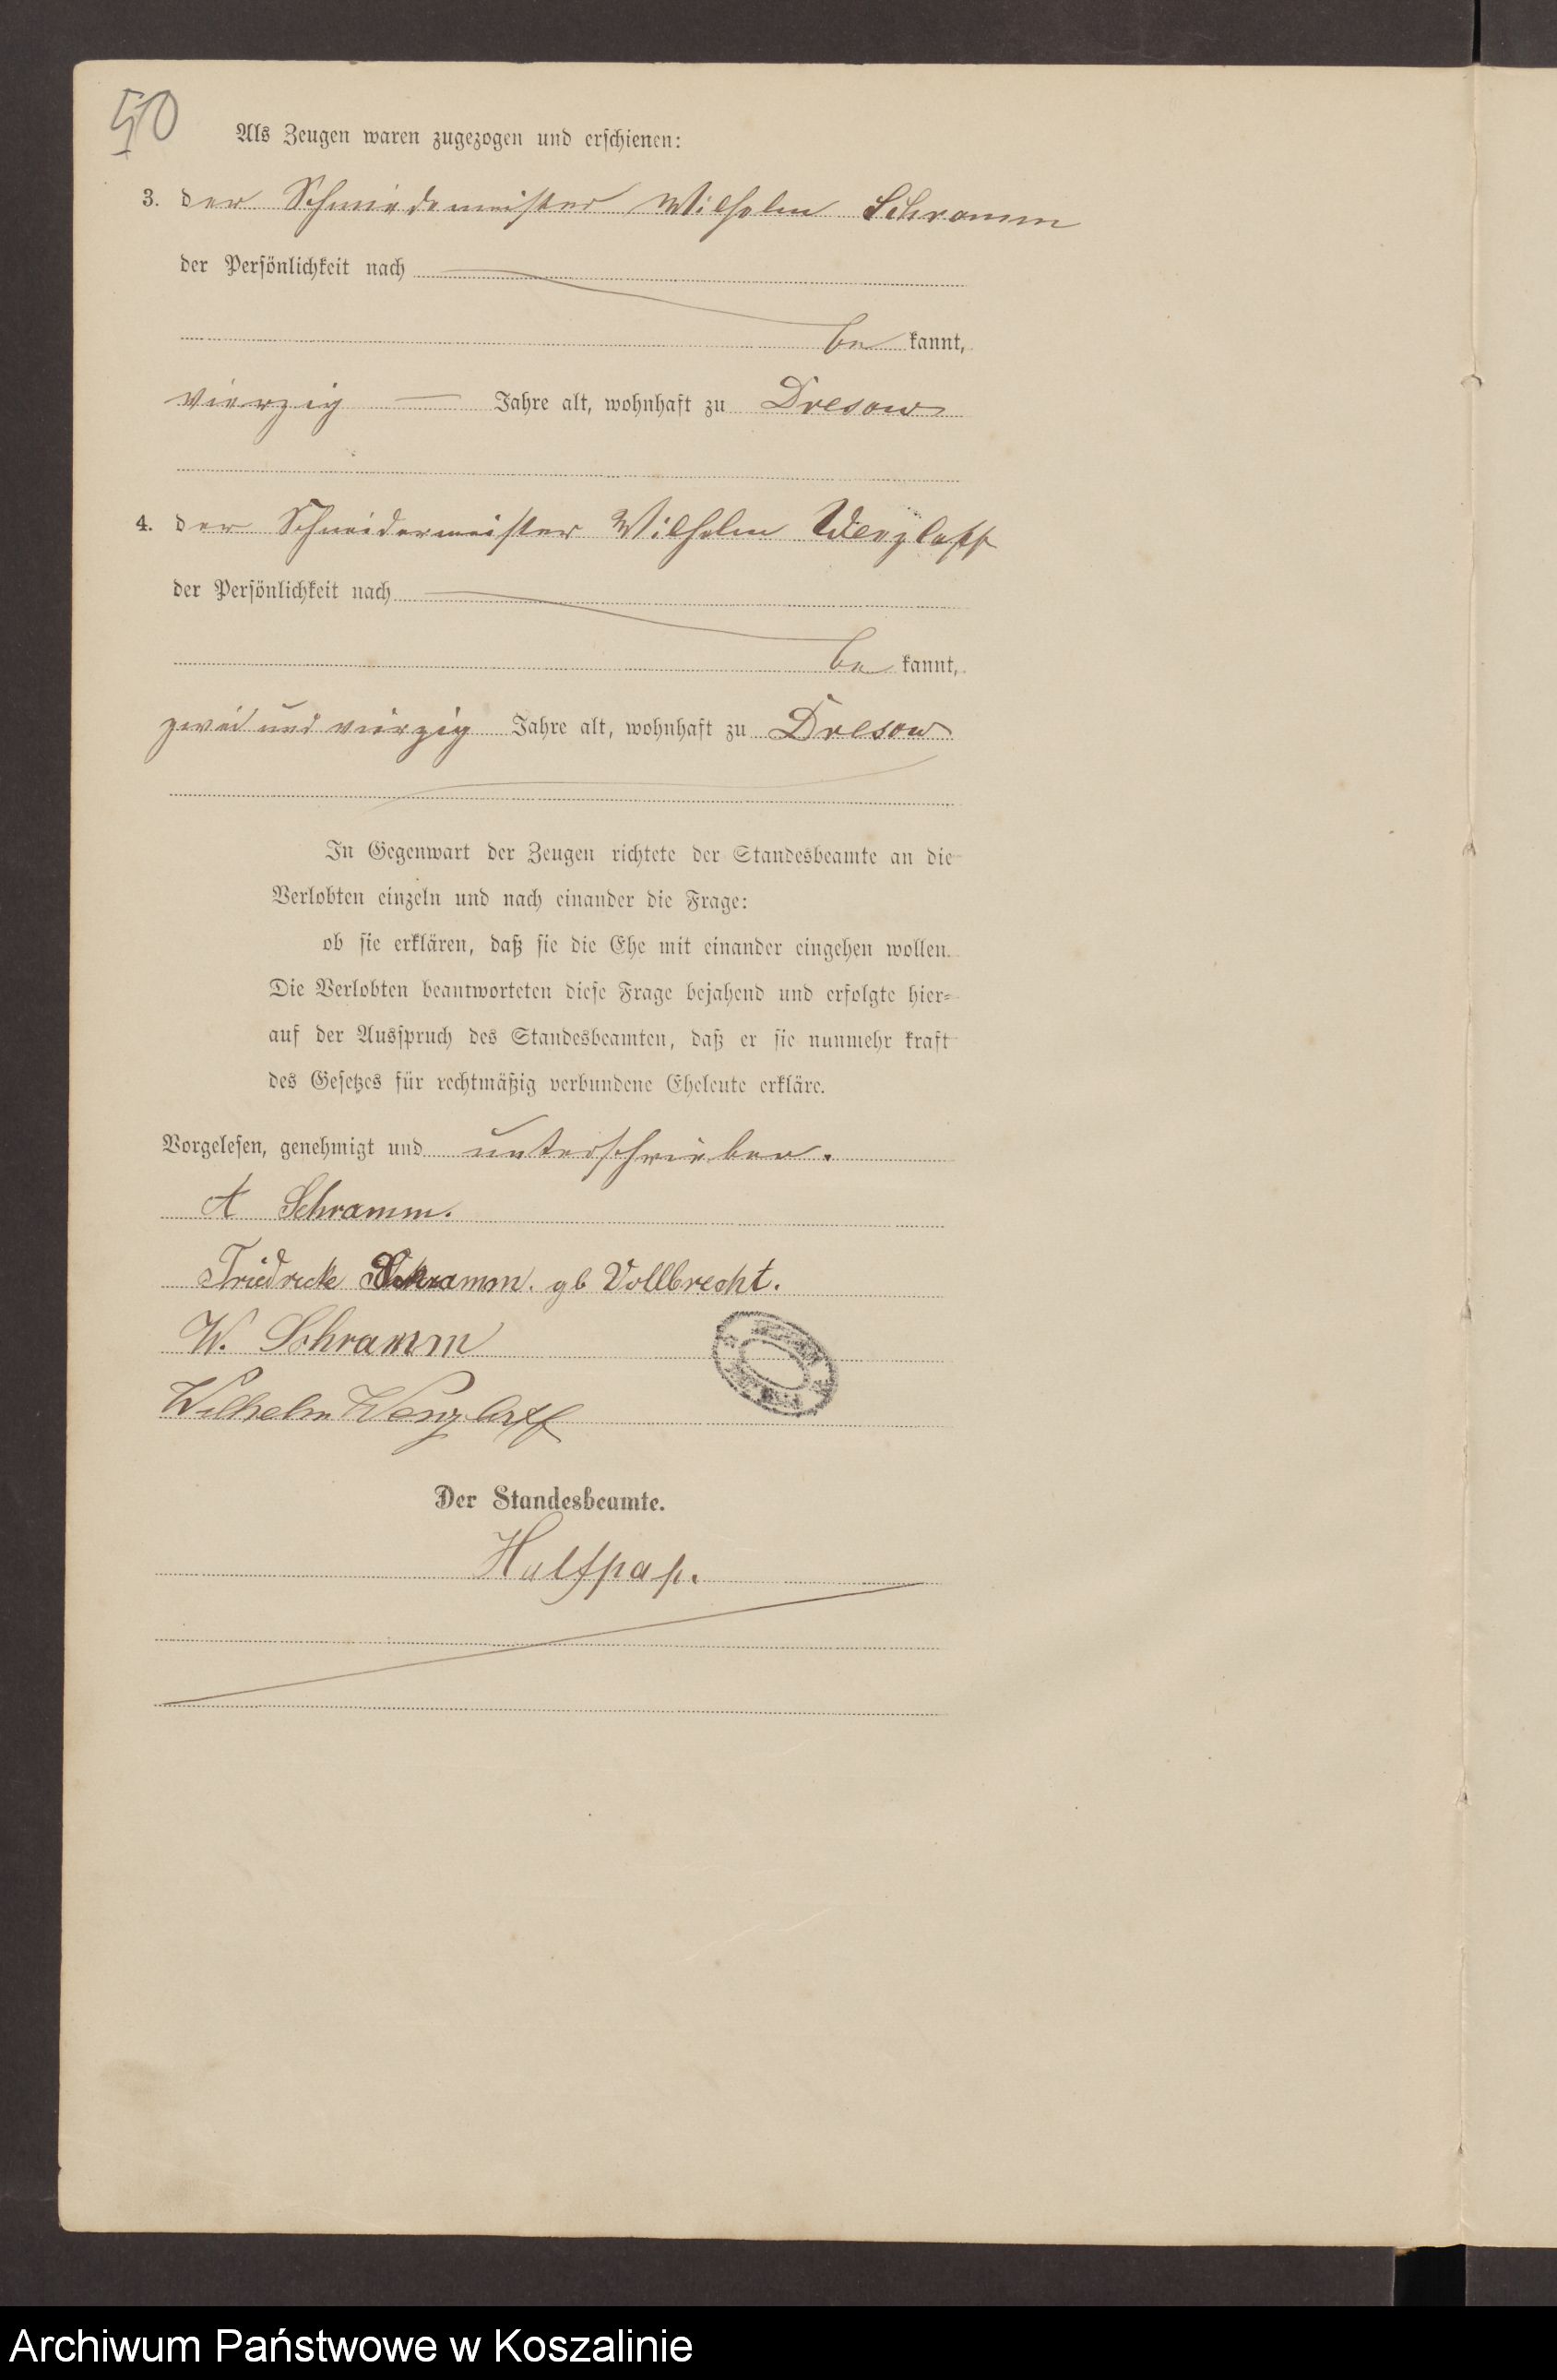 50
Als Zeugen waren zugezogen und erschienen:
3. der Schmiedemeister Wilhelm Schramm
der Persönlichkeit nach
be kannt,
vierzig — Jahre alt, wohnhaft zu Dresow
4. der Schneidermeister Wilhelm Wenzlaff
der Persönlichkeit nach
be kannt,
zwei und vierzig Jahre alt, wohnhaft zu Dresow
In Gegenwart der Zeugen richtete der Standesbeamte an die
Verlobten einzeln und nach einander die Frage:
ob sie erklären, daß sie die Ehe mit einander eingehen wollen.
Die Verlobten beantworteten diese Frage bejahend und erfolgte hier-
auf der Ausspruch des Standesbeamten, daß er sie nunmehr kraft
des Gesetzes für rechtmäßig verbundene Eheleute erkläre.
Vorgelesen, genehmigt und unterschrieben.
A Schramm.
Friedreke Schramm. gb Vollbrecht.
W. Schramm
Wilhelm Wenzlaff
Der Standesbeamte.
Halfpap.
Archiwum Państwowe w Koszalinie